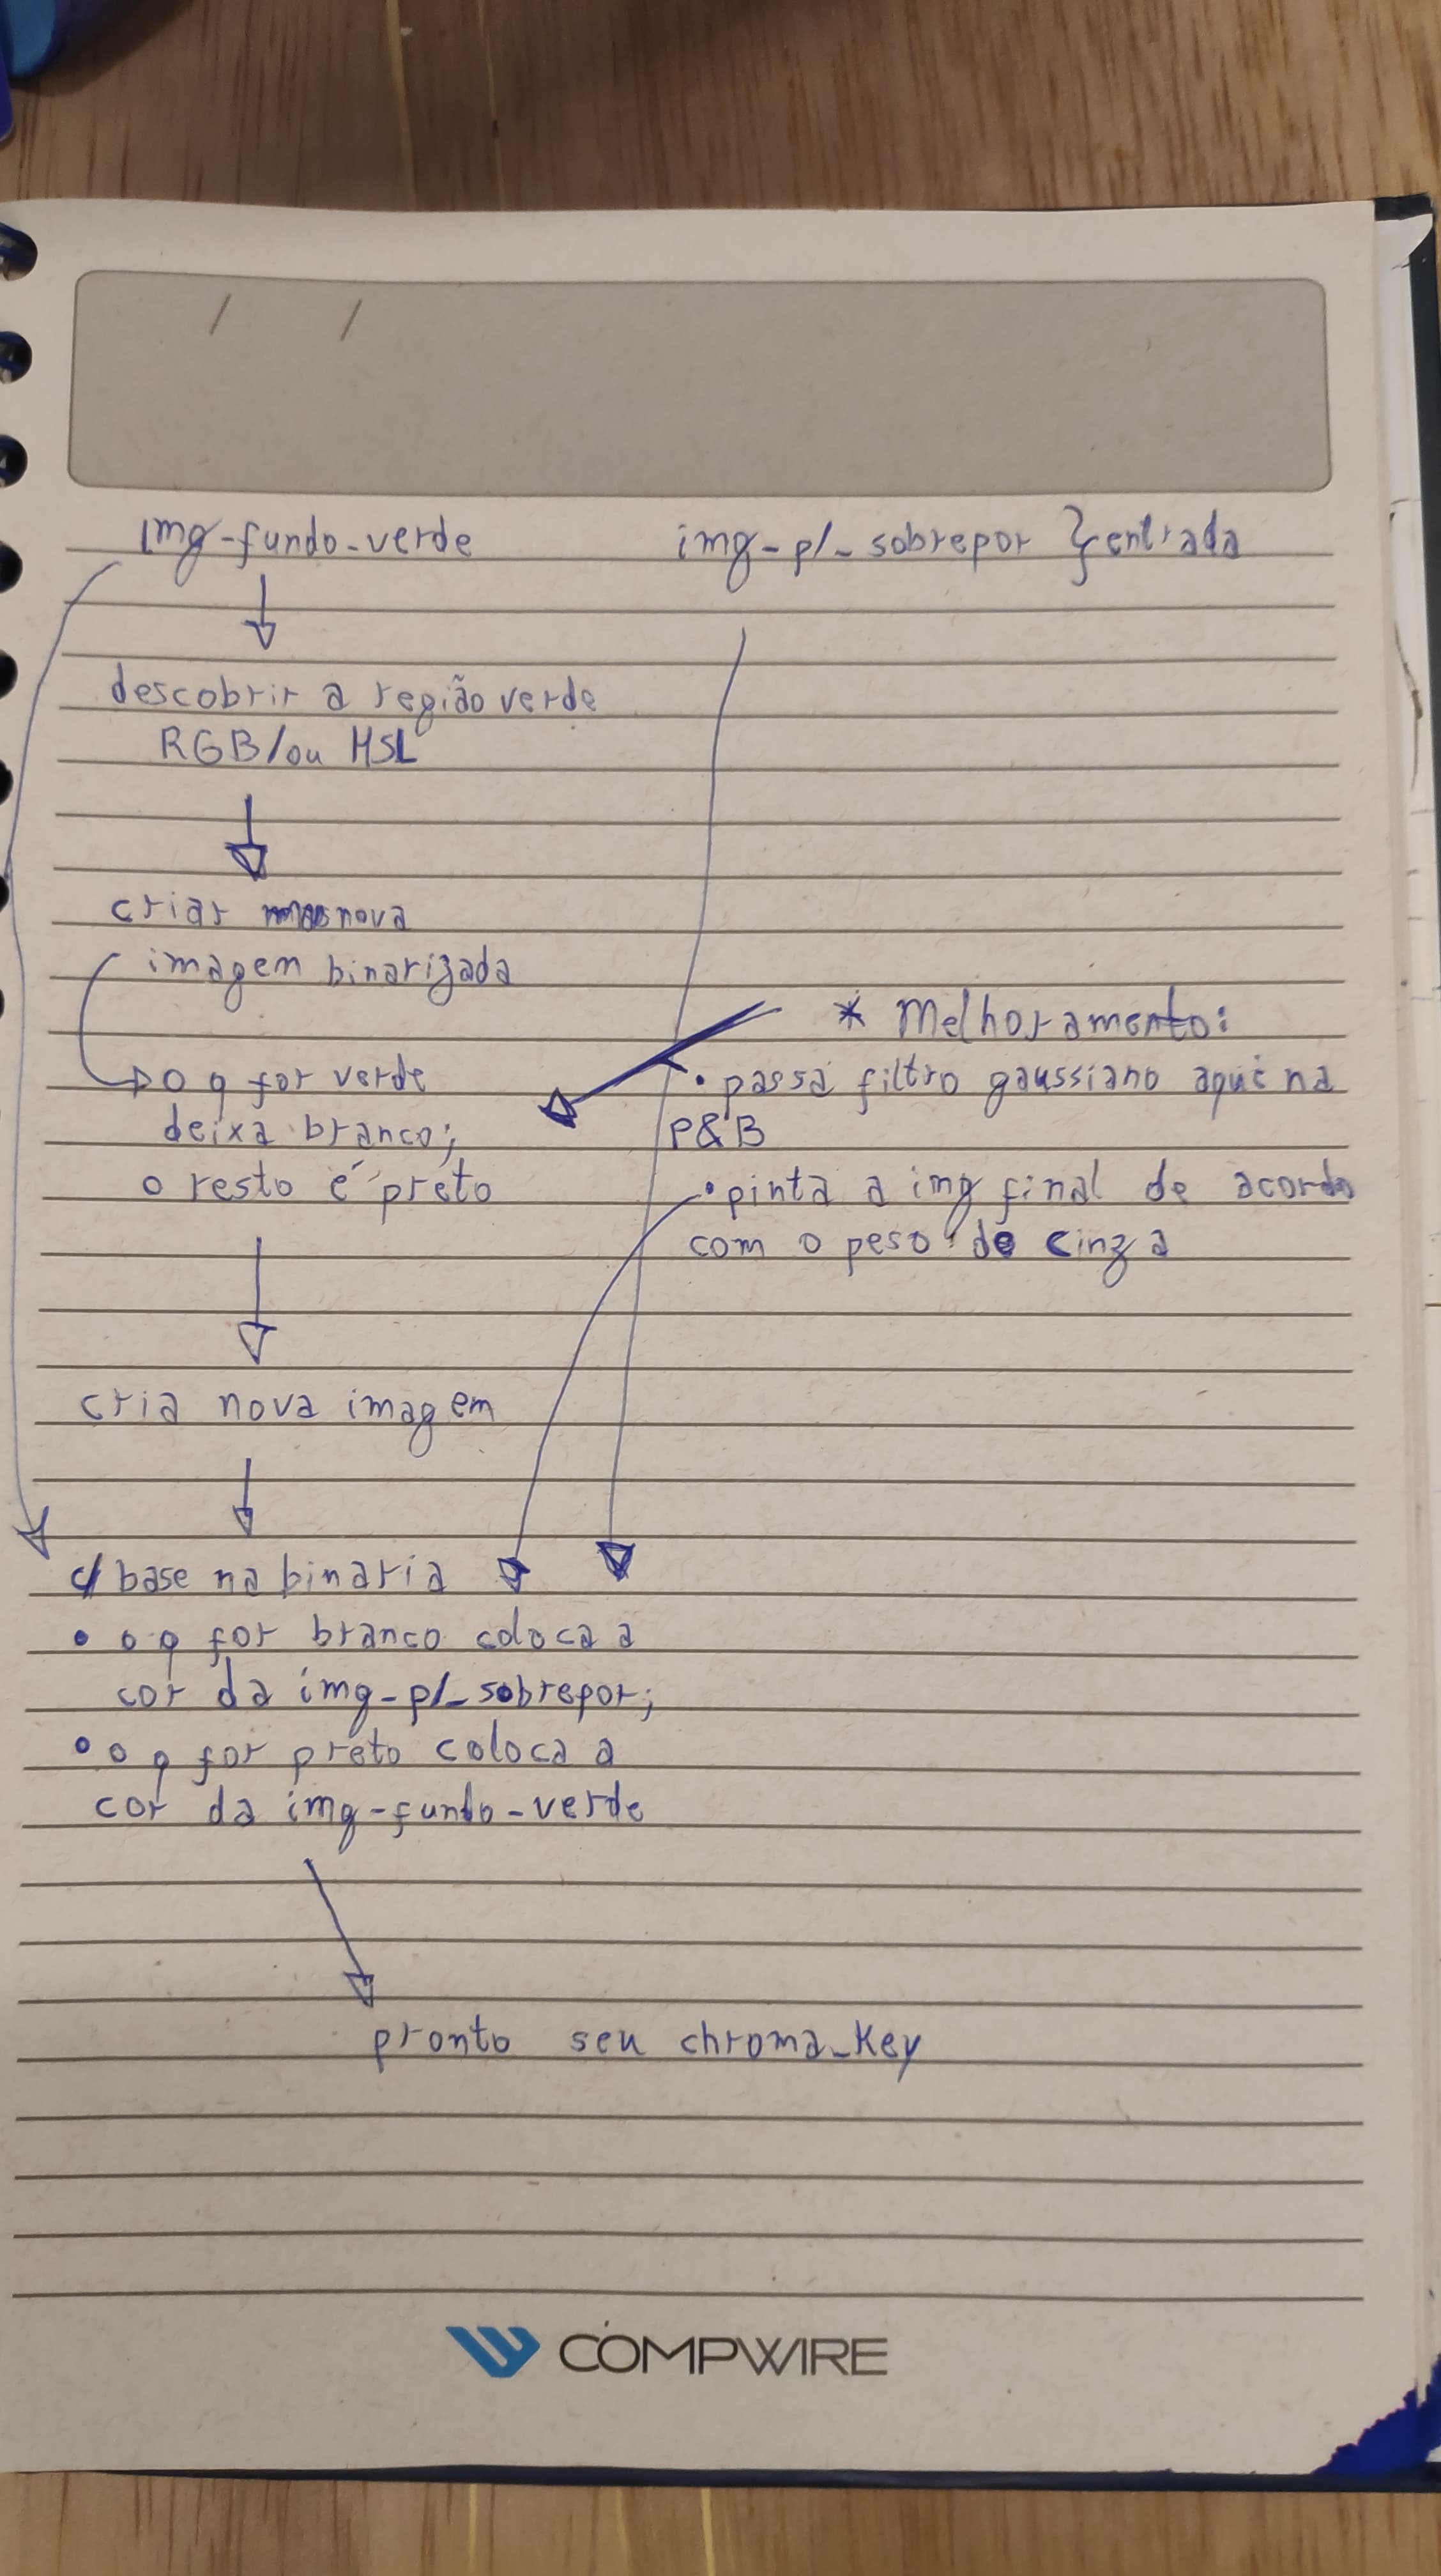 img-fundo-verde
img-p/_sobrepor } entrada
descobrir a região verde
RGB/ou HSL
criar nova
imagem binarizada
o q for verde
deixa branco;
o resto é preto
* Melhoramento:
• passa filtro gaussiano aqui na
P&B
• pinta a img final de acordo
com o peso de cinza
cria nova imagem
c/ base na binaria
• o q for branco coloca a
cor da img-p/_sobrepor;
• o q for preto coloca a
cor da img-fundo-verde
pronto seu chroma_key
COMPWIRE